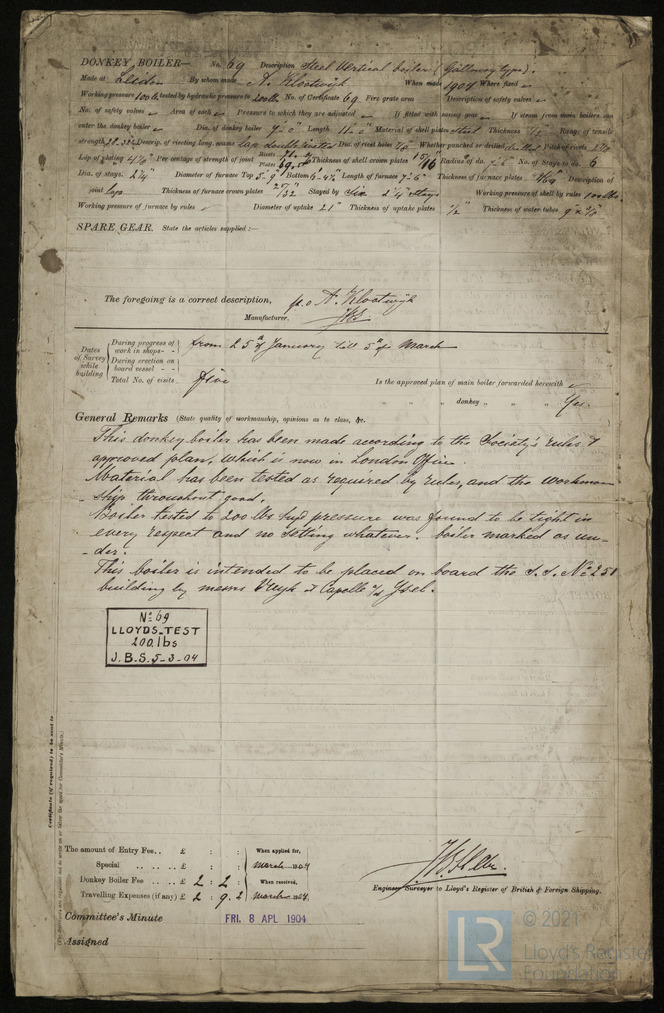 DONKEY BOILER— No. 69 Description Steel Vertical boiler (Galloway type).
Made at Leiden By whom made A. Klootwijk When made 1904 Where fixed
Working pressure 100 lb tested by hydraulic pressure to 200 lbs No. of Certificate 69 Fire grate area Description of safety valves
No. of safety valves Area of each Pressure to which they are adjusted If fitted with casing gear If steam from main boilers can
enter the donkey boiler Dia. of donkey boiler 7'-0" Length 11'-0" Material of shell plates steel Thickness 1/2" Range of tensile
strength Descrip. of riveting long. seams lap double riveted Dia. of rivet holes Whether punched or drilled drilled Pitch of rivets
Lap of plating Per centage of strength of joint Rivets Plates Thickness of shell crown plates Radius of do. No. of Stays to do. 6
Dia. of stays. 2 1/4" Diameter of furnace Top 5'-9" Bottom 6'-4 3/4" Length of furnace 7'-6" Thickness of furnace plates Description of
joint lap Thickness of furnace crown plates 27/32" Stayed by six 2 1/4" stays Working pressure of shell by rules 100 lbs.
Working pressure of furnace by rules Diameter of uptake 21" Thickness of uptake plates 1/2" Thickness of water tubes
SPARE GEAR. State the articles supplied:—
The foregoing is a correct description,
p.o A. Klootwijk
Manufacturer.
Dates of Survey while building
During progress of work in shops - - from 25th January till 5th of March
During erection on board vessel - - -
Total No. of visits five
Is the approved plan of main boiler forwarded herewith
" " " donkey " " " Yes.
General Remarks (State quality of workmanship, opinions as to class, &c.
This donkey boiler has been made according to the Society's rules &
approved plan, which is now in London Office.
Material has been tested as required by rules, and the workman-
-ship throughout good.
Boiler tested to 200 lbs hyd pressure was found to be tight in
every respect and no setting whatever. boiler marked as un-
-der.
This boiler is intended to be placed on board the S.S. No 251
building by messrs Vuyk at Capelle a/d Ysel.
No 69
LLOYDS TEST
200 lbs
J.B.S. 5-3-04
Certificate (if required) to be sent to
The amount of Entry Fee .. £ : : When applied for,
Special .. .. .. .. £ : : March 1904
Donkey Boiler Fee .. .. £ 2 : 2 : When received,
Travelling Expenses (if any) £ 2 : 9.2 March 1904.
Engineer Surveyor to Lloyd's Register of British & Foreign Shipping.
Committee's Minute FRI. 8 APL 1904
Assigned
LR © 2021
Lloyd's Register
Foundation